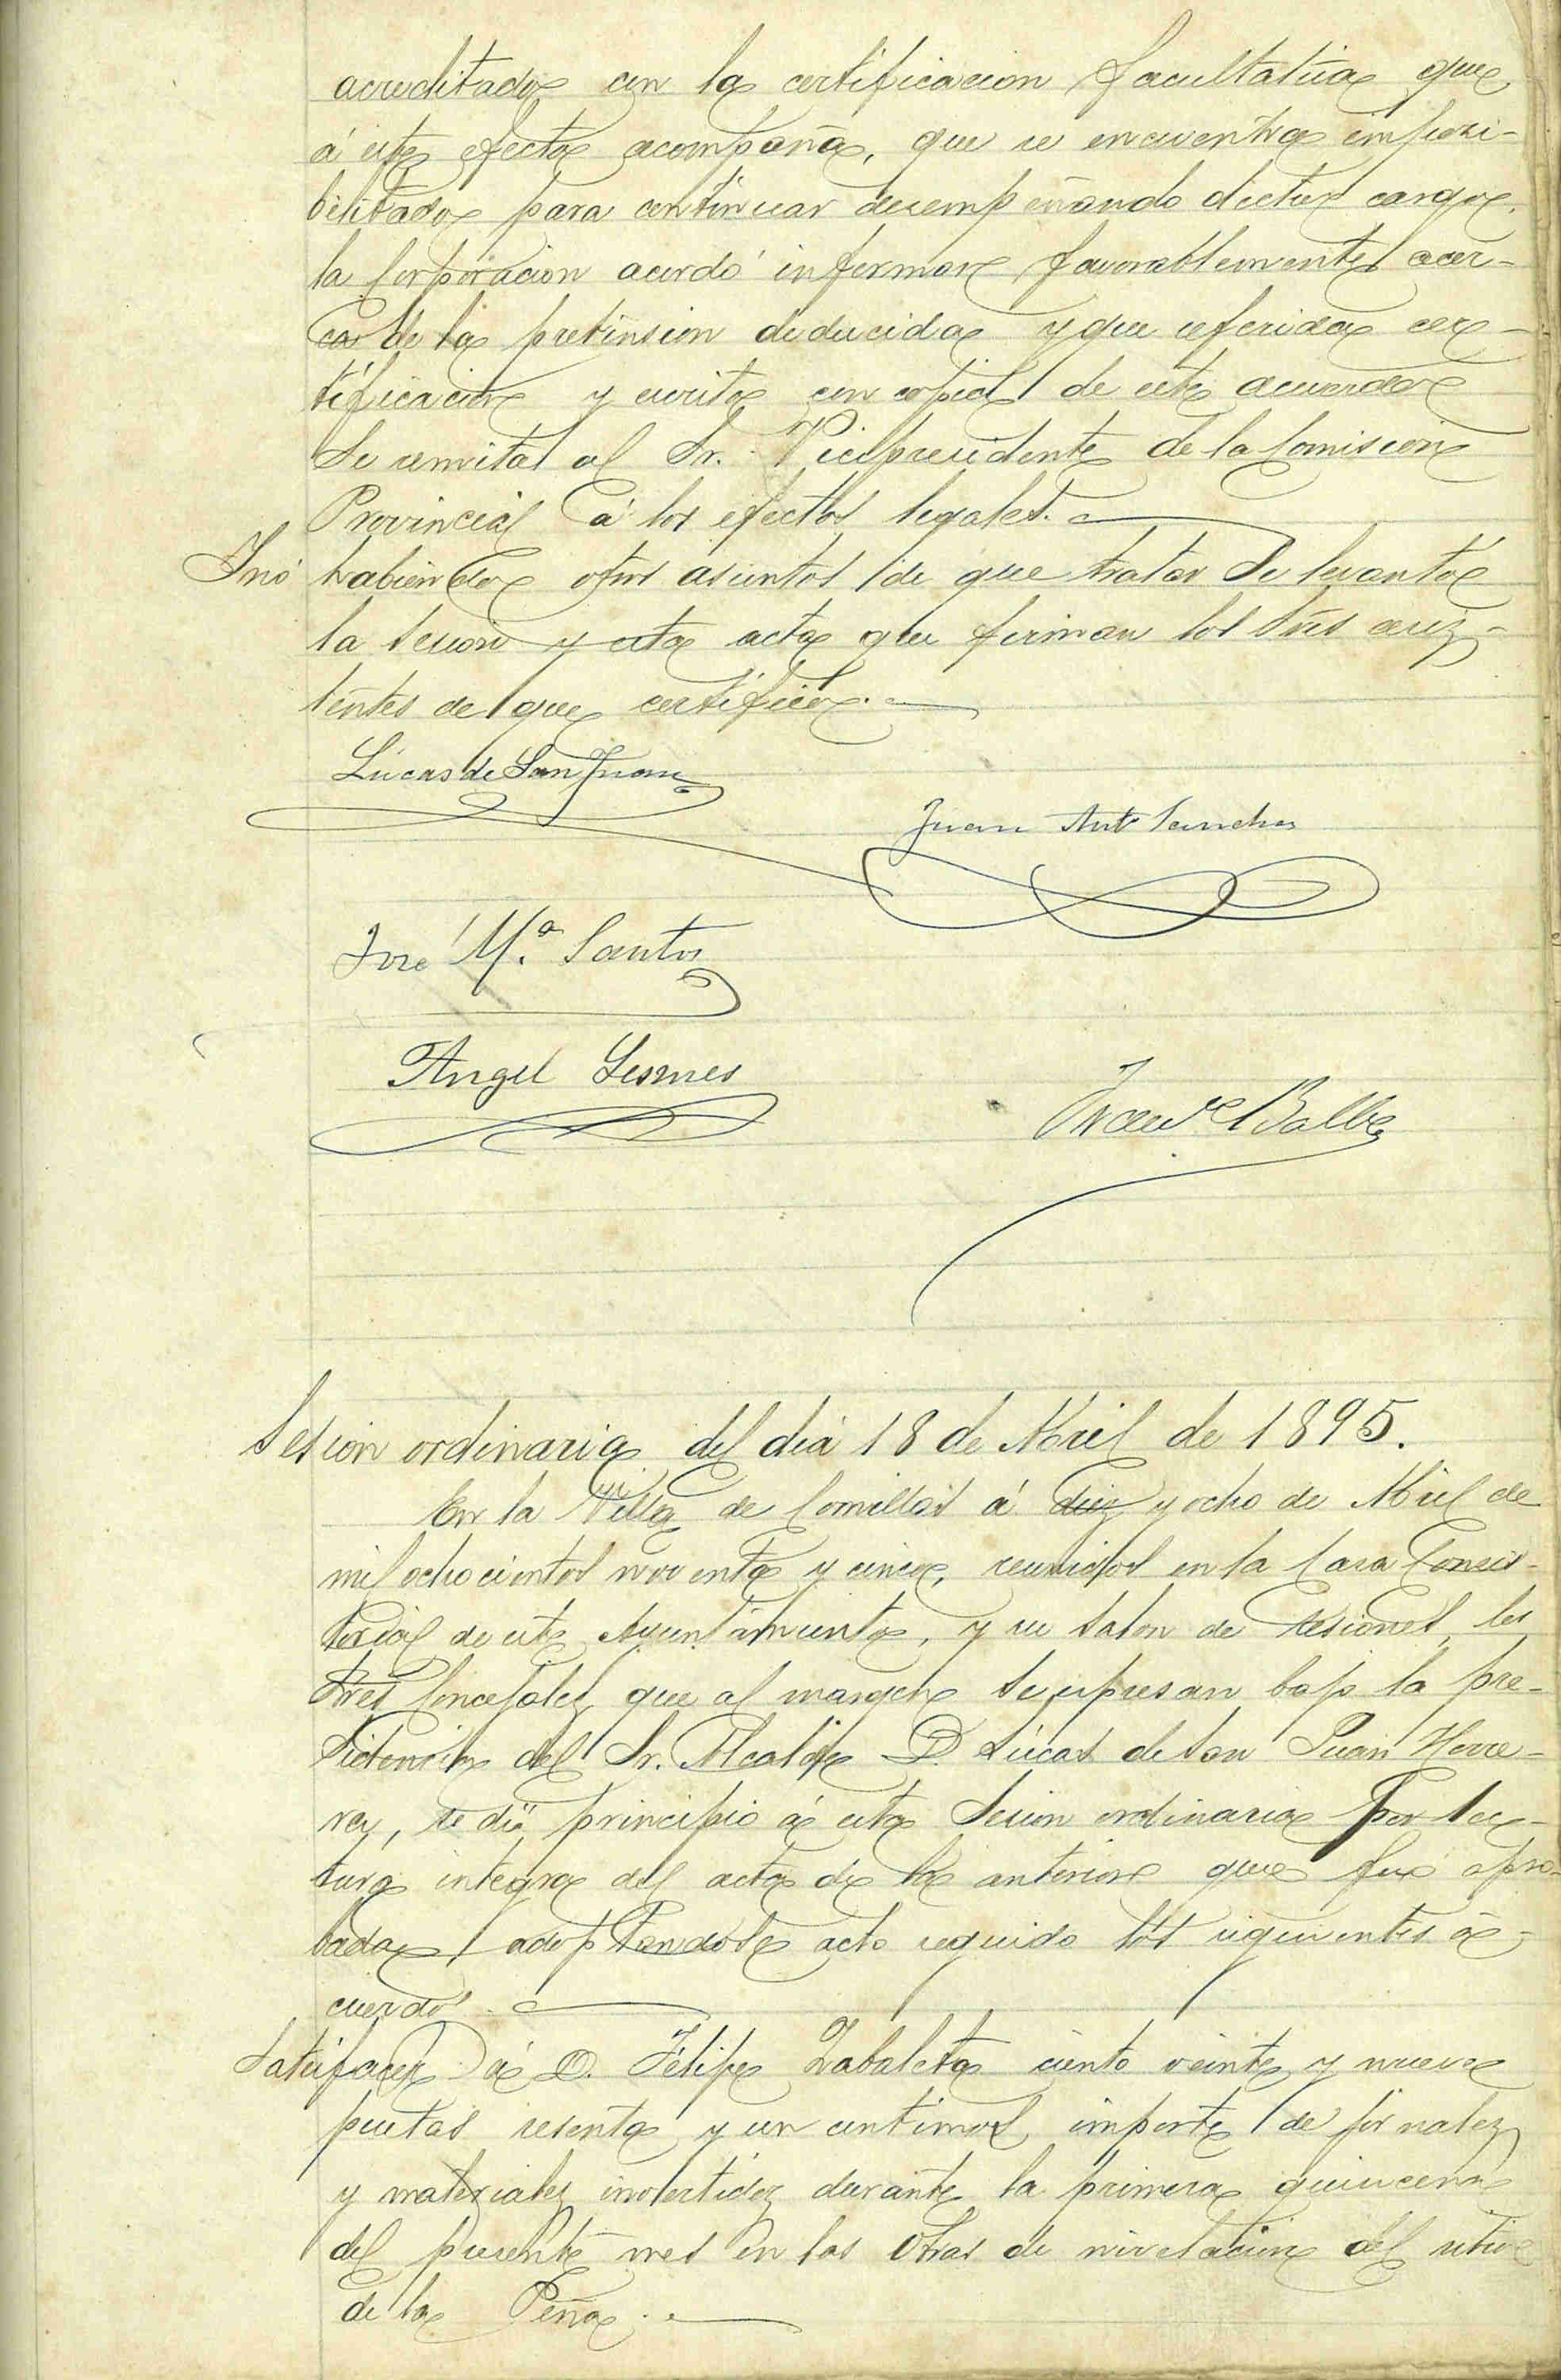 acreditado con la certificacion facultativa que
á este efecto acompaña, que se encuentra imposi-
bilitado para continuar desempeñando dicho cargo,
la Corporacion acordó informar favorablemente acer-
ca de la pretension deducida y que referida cer-
tificacion y escrito con copia de este acuerdo
se remita al Sr. Vicepresidente de la Comision
Provincial á los efectos legales.
Y no habiendo otros asuntos de que tratar se levantó
la sesion y esta acta que firman los Sres asis-
tentes de que certifico.
Lucas de San Juan
Juan Antº Sanchez
José Mª Santos
Angel Lesmes
Francº Balbe
Sesion ordinaria del dia 18 de Abril de 1895.
En la Villa de Comillas á diez y ocho de Abril de
mil ochocientos noventa y cinco, reunidos en la Casa Consis-
torial de este Ayuntamiento, y su salon de sesiones, los
Sres Concejales que al margen se espresan bajo la pre-
sidencia del Sr. Alcalde D. Lucas de San Juan Herre-
ra, se dió principio á esta sesion ordinaria por lec-
tura integra del acta de la anterior que fué apro-
bada, adoptandose acto seguido los siguientes a-
cuerdos.
Satisfacer á D. Felipe Zabaleta ciento veinte y nueve
pesetas sesenta y un centimos importe de jornales
y materiales invertidos durante la primera quincena
del presente mes en las obras de nivelacion del sitio
de la Peña.